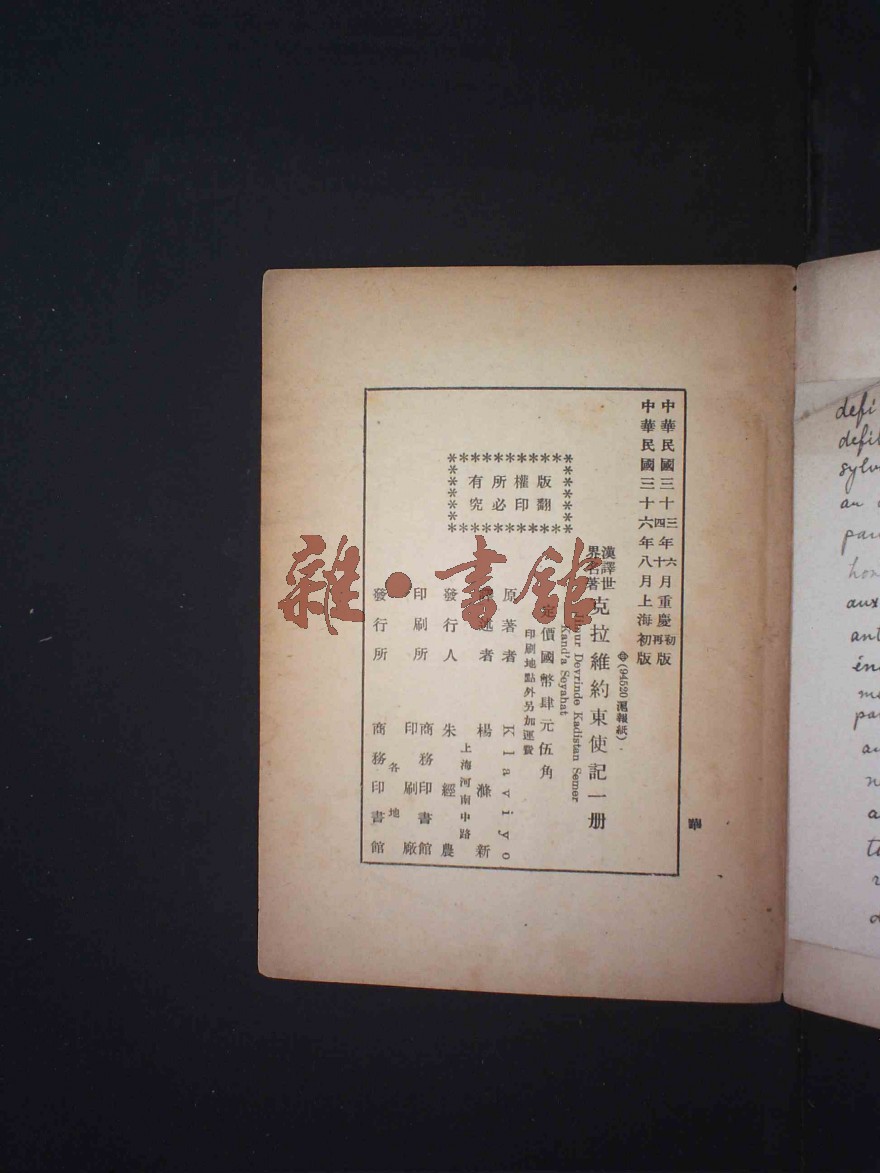 中華民國三十三年六月重慶初版
中華民國三十四年十月重慶再版
中華民國三十六年八月上海初版
(94520滬報紙)
漢譯世界名著
克拉維約東使記一册
Devrinde Kadistan Semer
Kand'a Seyahat
定價國幣肆元伍角
印刷地點外另加運費
原著者 Klaviyo
述者 楊滌新
發行人 朱經農
上海河南中路
印刷所 商務印書館印刷廠
發行所 各地商務印書館
版權所有
翻印必究
雜·書館
defi
defil
sylv
par
hon
aux
ant